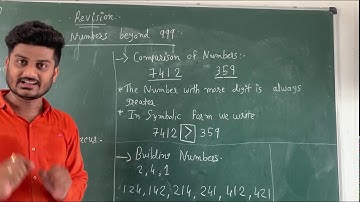 Revision
Numbers beyond 999
→ Comparison of Numbers:
7412 359
* The Number with more digit is always
greater
* In Symbolic Form we write
7412 > 359
→ Building Numbers.
2,4,1
124, 142, 214, 241, 412, 421